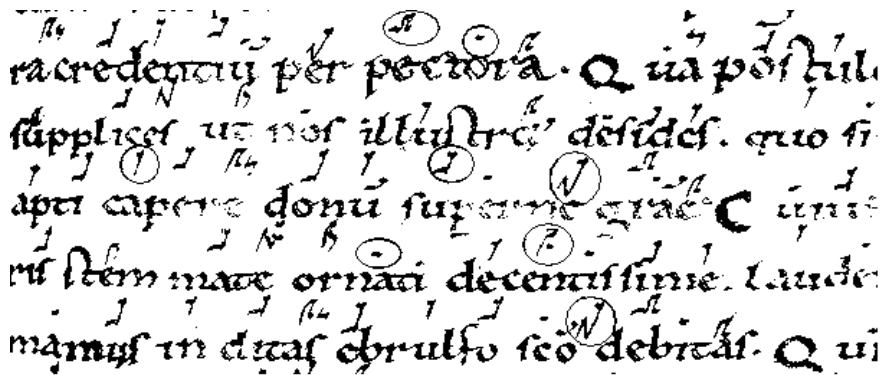 racredentiū per pectora. Quā postul
supplices ut nos illustres desides. quo si
apti capere donū superne grae C unu
ris stem mate ornati decentissime. laude
mamus in ditas obrulso sco debitas. Q ui